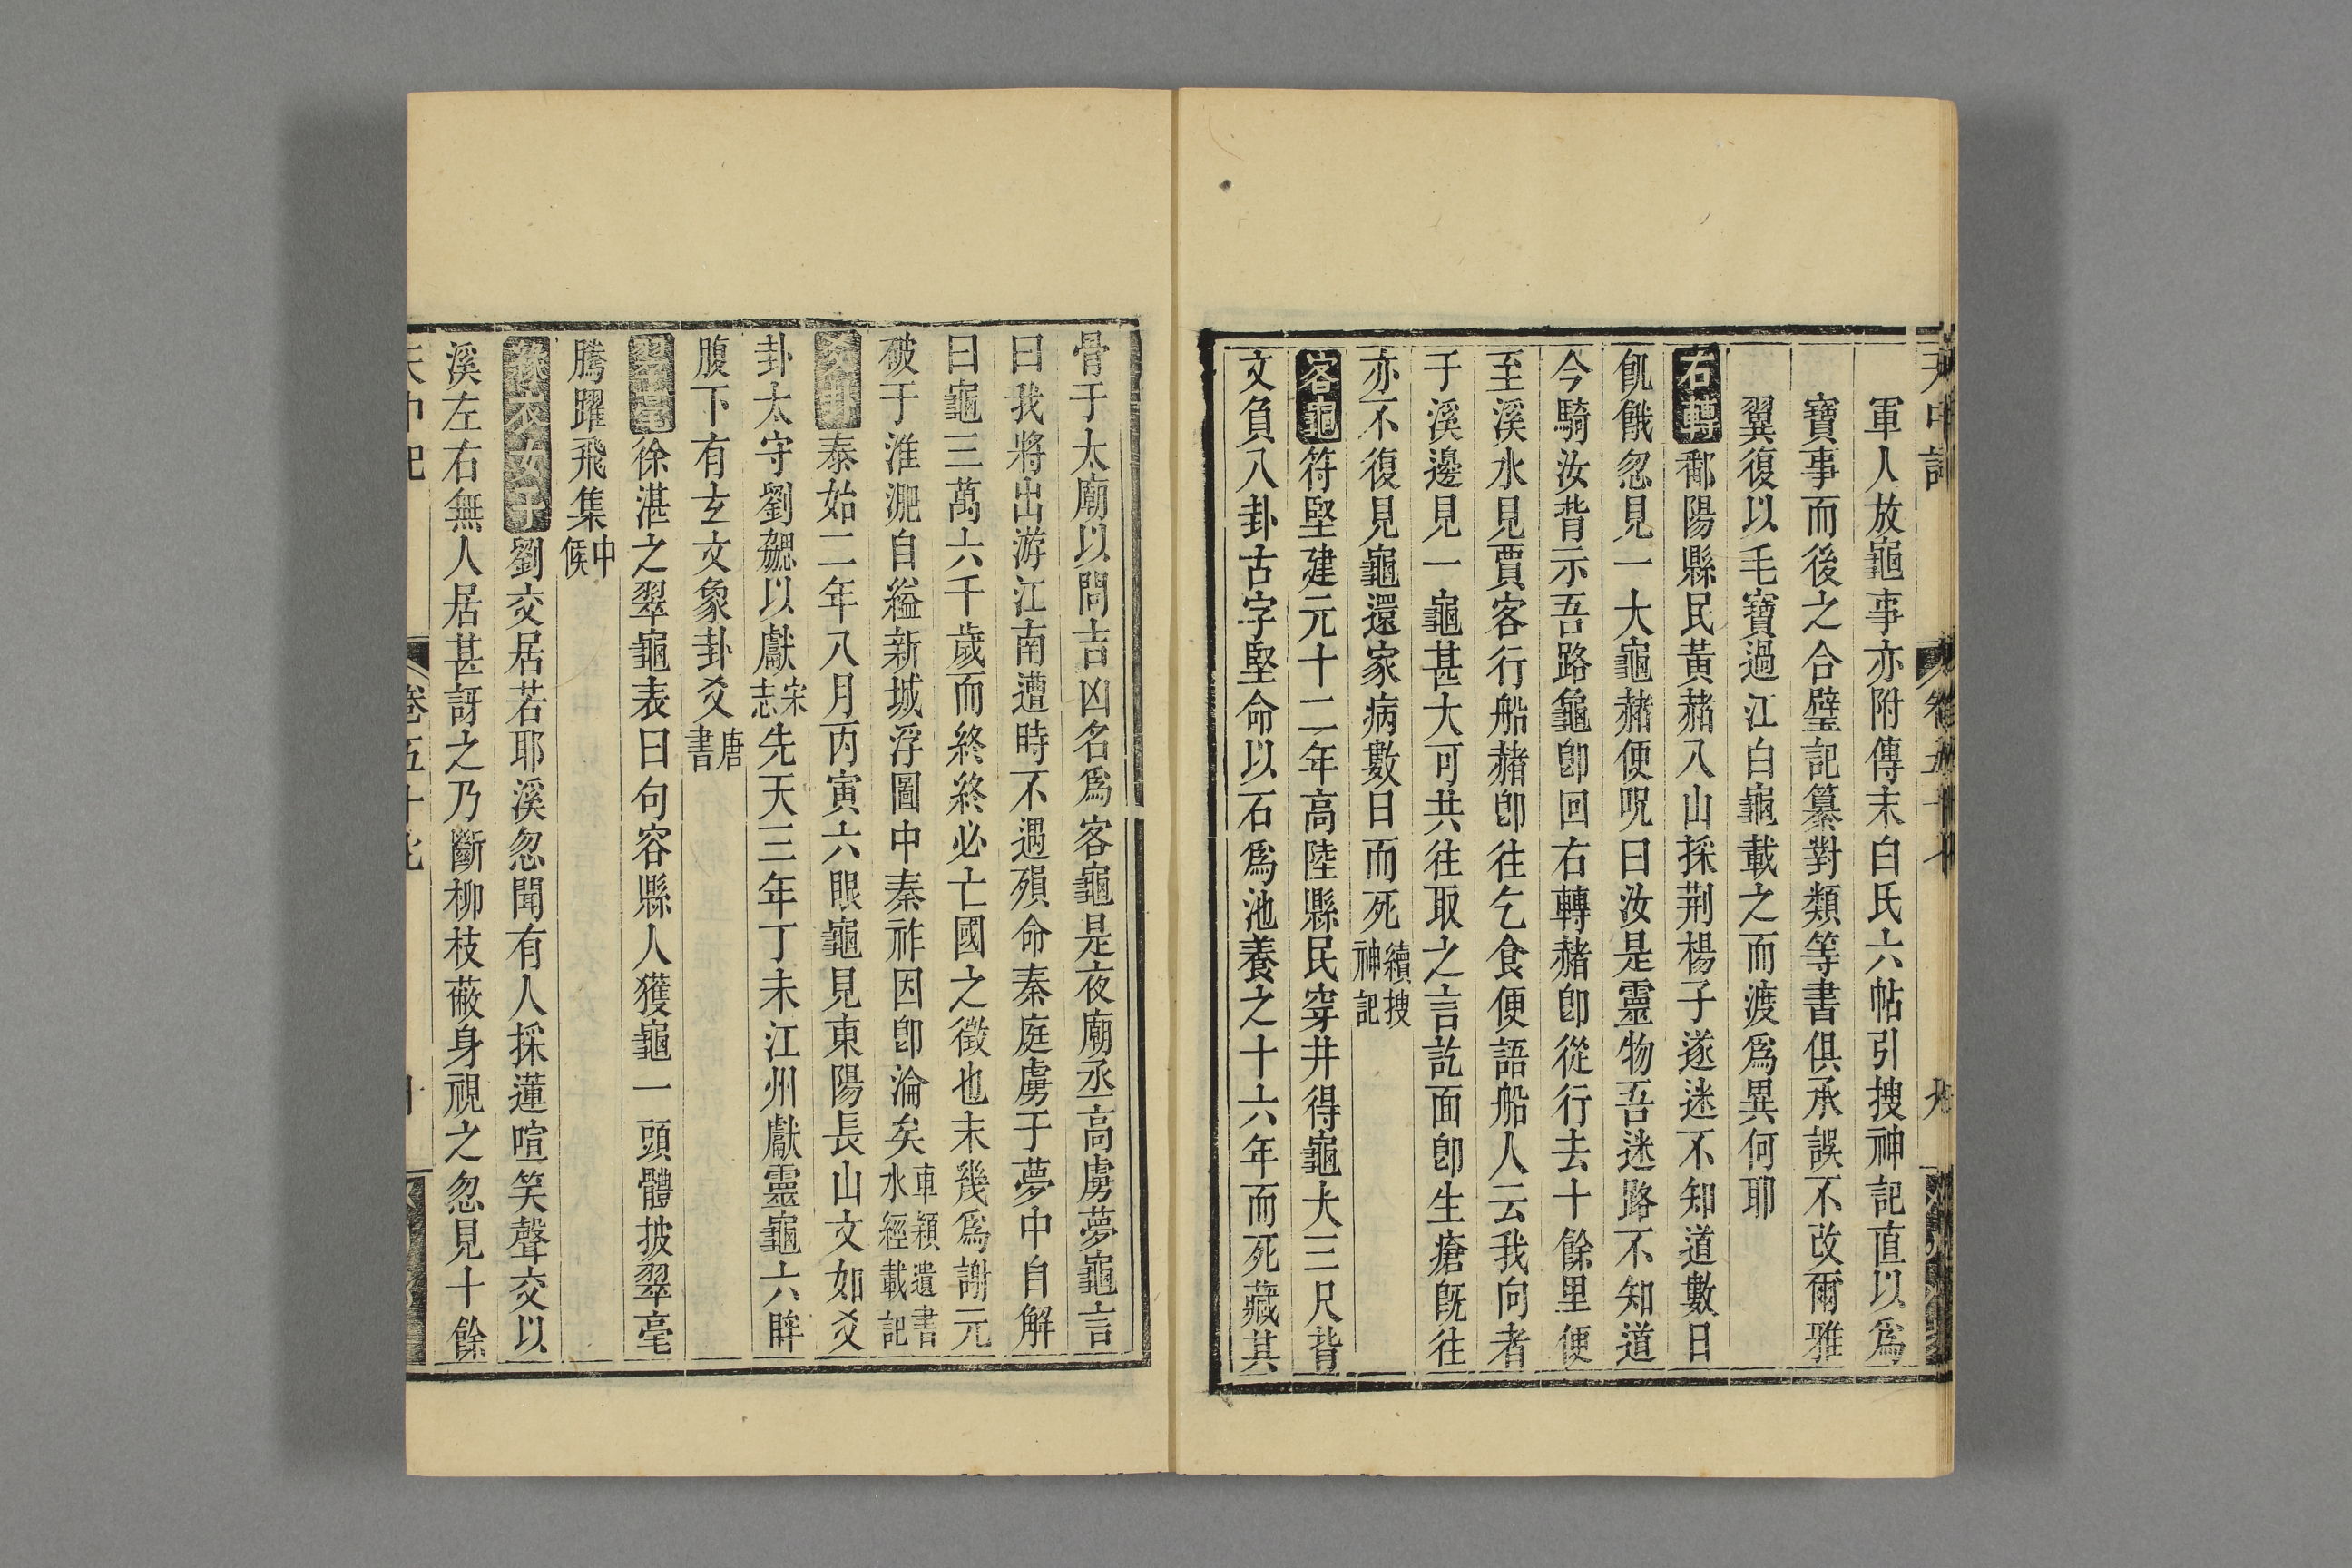 軍人放龜事亦附傳末白氏六帖引搜神記直以爲
寶事而後之合璧記纂對類等書俱承誤不改爾雅
翼復以毛寶過江白龜載之而渡爲異何耶
右轉鄱陽縣民黃赭入山採荆楊子遂迷不知道數日
飢餓忽見一大龜赭便呪曰汝是靈物吾迷路不知道
今騎汝背示吾路龜卽回右轉赭卽從行去十餘里便
至溪水見賈客行船赭卽往乞食便語船人云我向者
于溪邊見一龜甚大可共往取之言訖面卽生瘡旣往
亦不復見龜還家病數日而死續搜神記
客龜符堅建元十二年高陸縣民穿井得龜大三尺背
文負八卦古字堅命以石爲池養之十六年而死藏其
骨于太廟以問吉凶名爲客龜是夜廟丞高虜夢龜言
曰我將出游江南遭時不遇殞命秦庭虜于夢中自解
曰龜三萬六千歲而終終必亡國之徵也末幾爲謝元
破于淮淝自縊新城浮圖中秦祚因卽淪矣車頻遺書水經載記
泰始二年八月丙寅六眼龜見東陽長山文如爻
卦太守劉勰以獻宋志先天三年丁未江州獻靈龜六眸
腹下有玄文象卦爻唐書
翠毫徐湛之翠龜表曰句容縣人獲龜一頭體披翠毫
騰躍飛集中候
綠衣女子劉交居若耶溪忽聞有人採蓮喧笑聲交以
溪左右無人居甚訝之乃斷柳枝蔽身視之忽見十餘
天中記 卷五十七 十